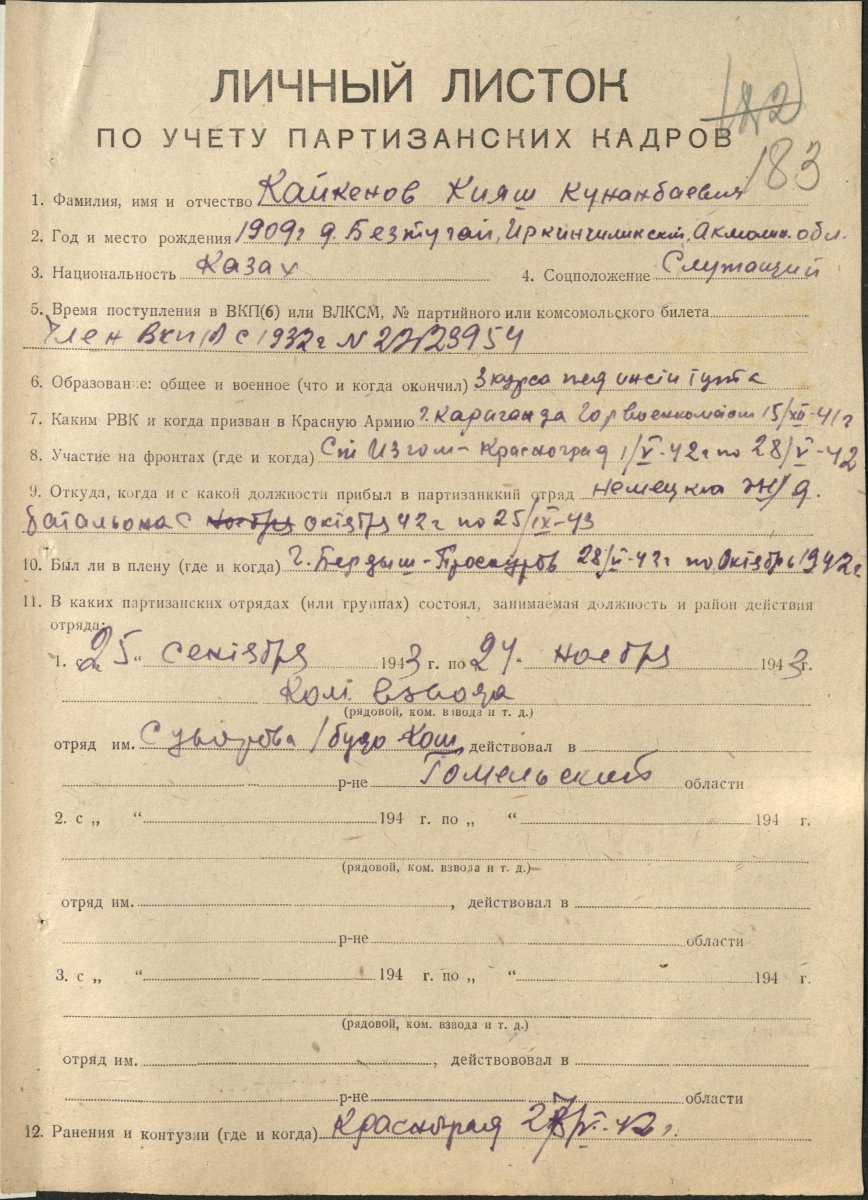 ЛИЧНЫЙ ЛИСТОК
ПО УЧЕТУ ПАРТИЗАНСКИХ КАДРОВ
183
1. Фамилия, имя и отчество Кайкенов Кияш Кунанбаевич
2. Год и место рождения 1909г д. Безтугай, Иркинчилинский, Акмолин. обл.
3. Национальность Казах 4. Соцположение Служащий
5. Время поступления в ВКП(б) или ВЛКСМ, № партийного или комсомольского билета
Член ВКП(б) с 1932г N
6. Образование: общее и военное (что и когда окончил) 3 курса пединститута
7. Каким РВК и когда призван в Красную Армию г. Караганда Горвоенкоматом 15/XII-41г
8. Участие на фронтах (где и когда) Ст Изюм-Красноград 1/V-42г по 28/V-42
9. Откуда, когда и с какой должности прибыл в партизанккий отряд немецкого ж/д.
батальона с ноября октября 42г по 25/IX-43
10. Был ли в плену (где и когда) г. -Проскуров 28/V-42г по Октябрь 1942г
11. В каких партизанских отрядах (или группах) состоял, занимаемая должность и район действия
отряда:
1. с 25 " сентября 1943 г. по 27 " ноября 1943 г.
Ком. взвода
(рядовой, ком. взвода и т. д.)
отряд им. Суворова действовал в
р-не Гомельский области
2. с „ “ 194 г. по „ “ 194 г.
(рядовой, ком. взвода и т. д.)
отряд им. , действовал в
р-не области
3. с „ “ 194 г. по „ “ 194 г.
(рядовой, ком. взвода и т. д.)
отряд им. , действововал в
р-не области
12. Ранения и контузии (где и когда) Красноград